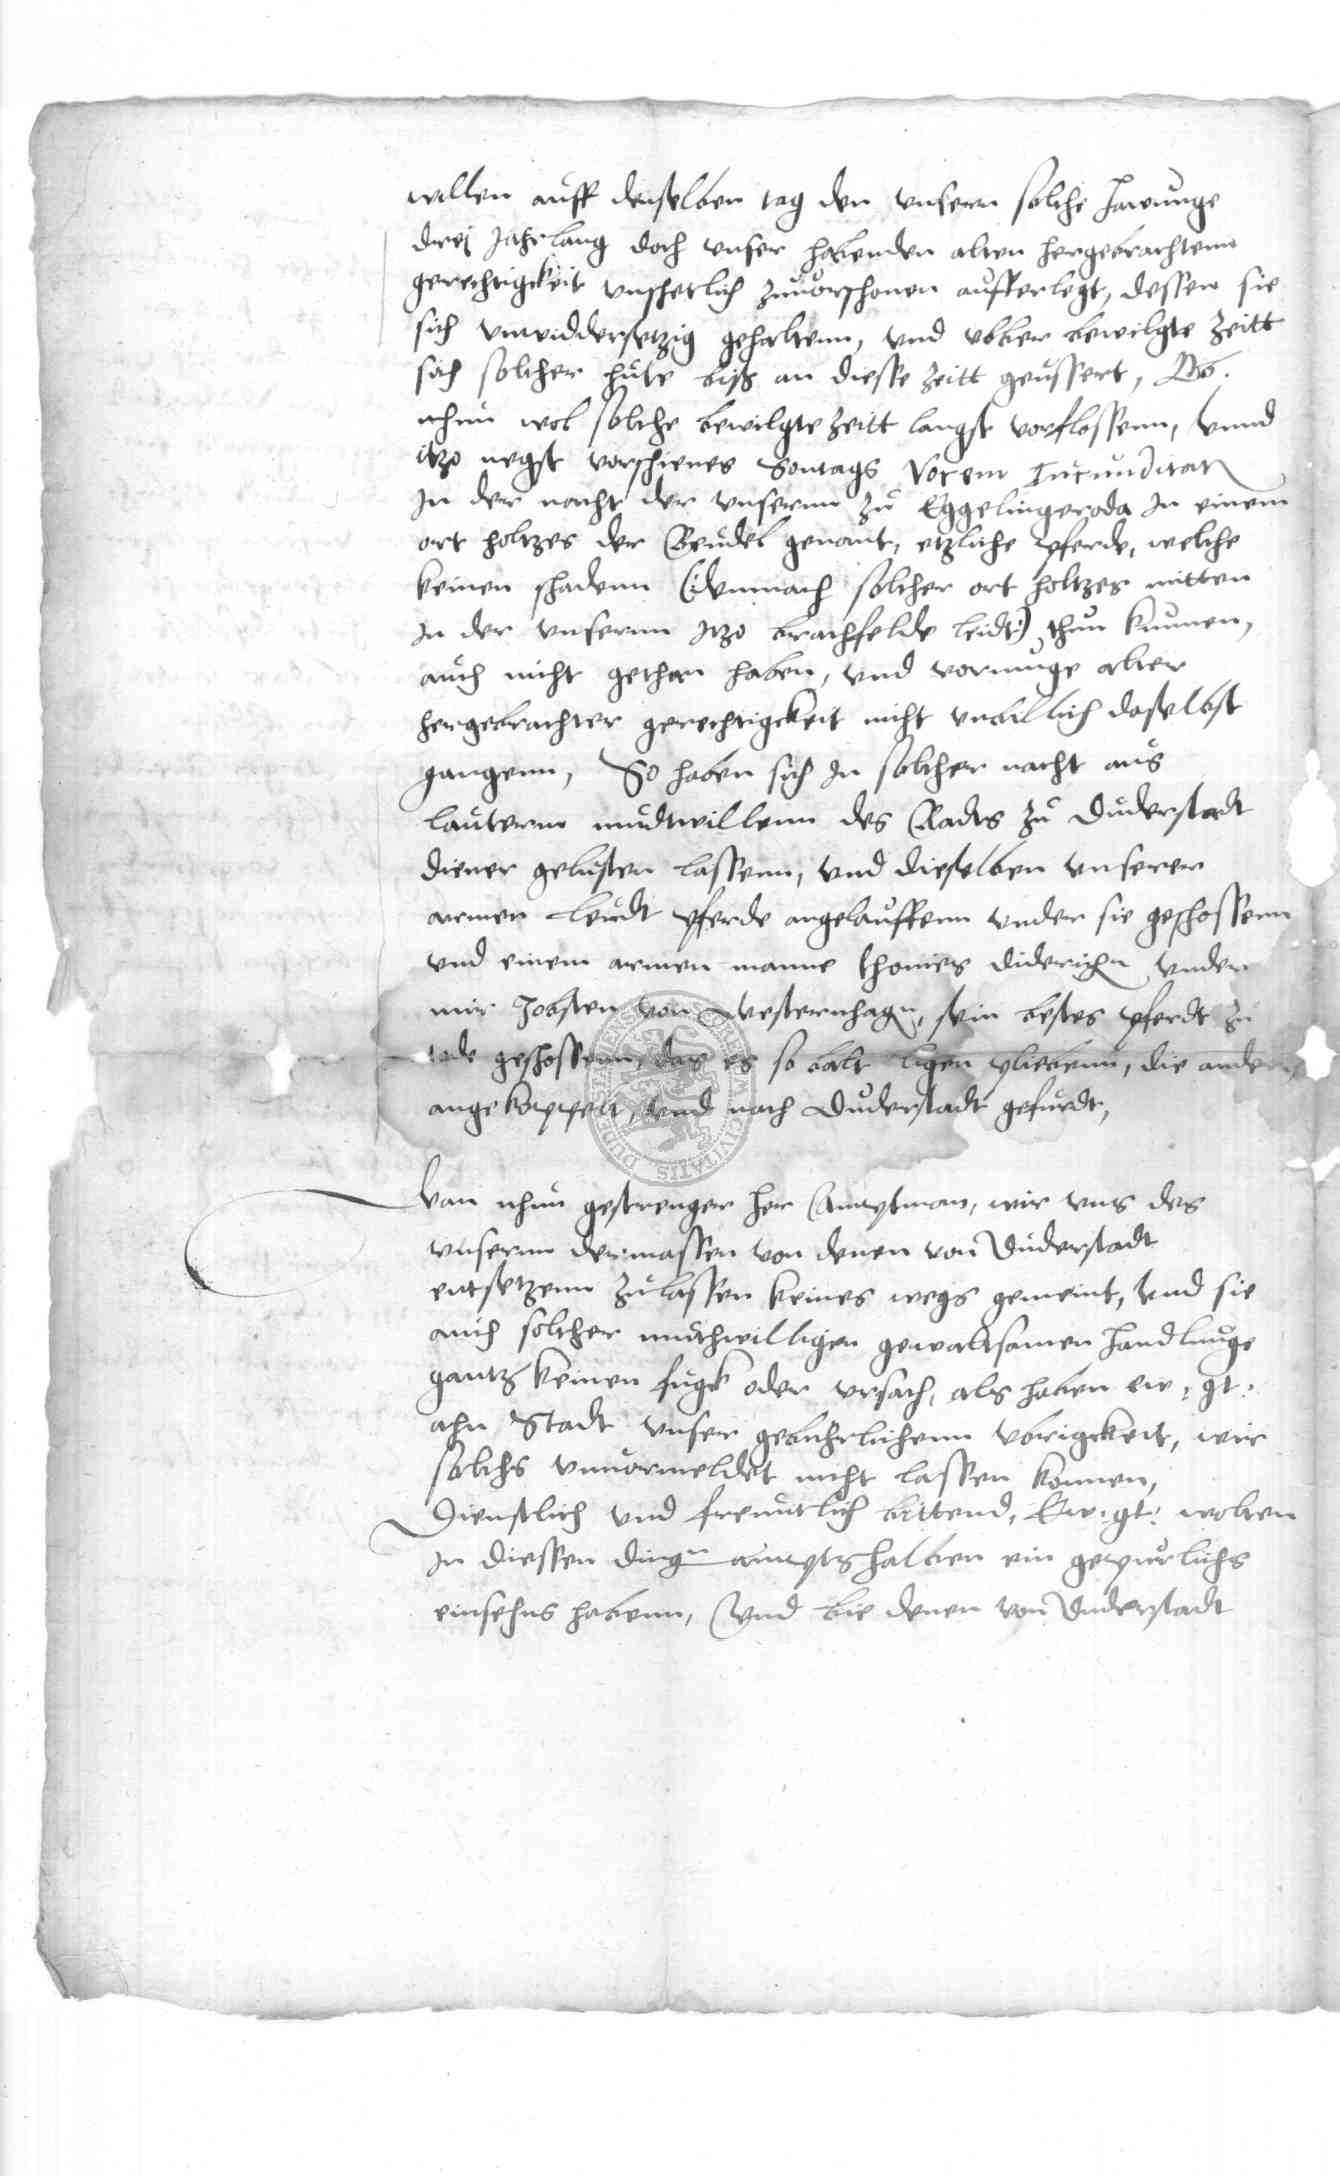 willen auff denselben tag den vnsern solche hawunge
drei Jahrlang doch vnser habenden alten hergebrachtenn
gerechtigkeit vnschetlich zuuorschonen aufferlegt, dessen sie
sich vnwiddersetzig gehaltenn, vnd vber bewilgte zeitt
sich solcher hute biß an diesse zeitt geussert, Ob
nhun wol solche bewilgte zeitt langst vorflossenn, vnnd
itzo negst vorschienes Sontags Vocem Iucunditat
In der nacht der vnsernn zu Eggelingeroda In einem
ort holtzes der genant, etzliche pferde, welche
keinen schadenn (:demnach solcher ort holtzes mitten
In der vnsernn itzo brachfelde leidt:) thun kunnen,
auch nicht gethan haben, vnd vormuge alter
hergebrachter gerechtigkeit nicht vnbillich daselbst
gangenn, So haben sich In solcher nacht aus
lauterm mudtwillenn des Radts zu Duderstadt
diener gelusten lassenn, vnd dieselben vnserer
armen leudt pferde angelauffenn vnder sie geschossenn
vnd einem armen manne thonies diderichn vnder
mir Jobsten von Westernhagn, sein bestes pferdt zu
tode geschossenn, das es so balt ligen pliebenn, die andern
angekoppelt, vnd nach Duderstadt gefurdt,
Van nhun gestrenger her Amptman, wir vns des
vnsernn dermassen von denen von Duderstadt
entsetzenn zulassen keines wegs gemeint, vnd sie
auch solcher muthwilligen gewaltsamen handlunge
gantz keinen fugk oder vrsach, als haben ew: gt:
ahn Stadt vnser geburlichenn vbrigkeit, wir
solchs vnuormeldet nicht lassen konnen,
Dienstlich vnd freuntlich bittend, Ew: gt: wolten
In diessen dingn ampts halben ein gepurlichs
einsehns habenn, Vnd bie denen von Duderstadt